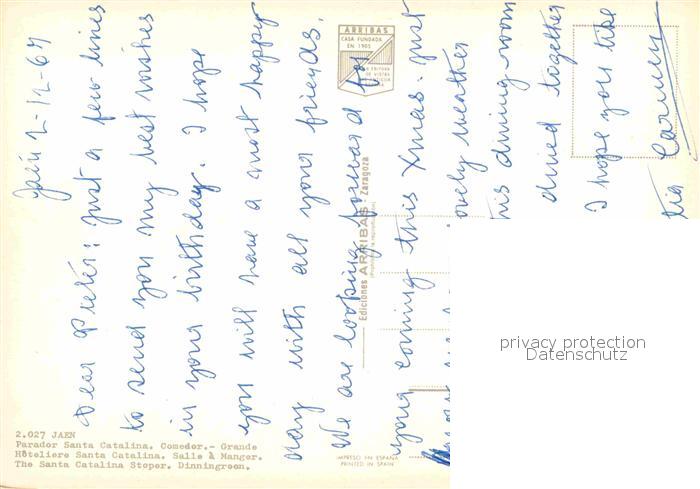 Jaén 2-12-67
Dear Pieter: Just a few lines
to send you my best wishes
in your birthday. I hope
you will have a most happy
day with all your friends.
We are looking forward for
your coming this Xmas. Just
lovely weather
this dining-room
dined together
I hope you like
tia Carmen
ARRIBAS
CASA FUNDADA
EN 1905
Ediciones ARRIBAS - Zaragoza
2.027 JAEN
Parador Santa Catalina. Comedor.- Grande
Hôteliere Santa Catalina. Salle à Manger.
The Santa Catalina Stoper. Dinningroon.
IMPRESO EN ESPAÑA
PRINTED IN SPAIN
privacy protection
Datenschutz